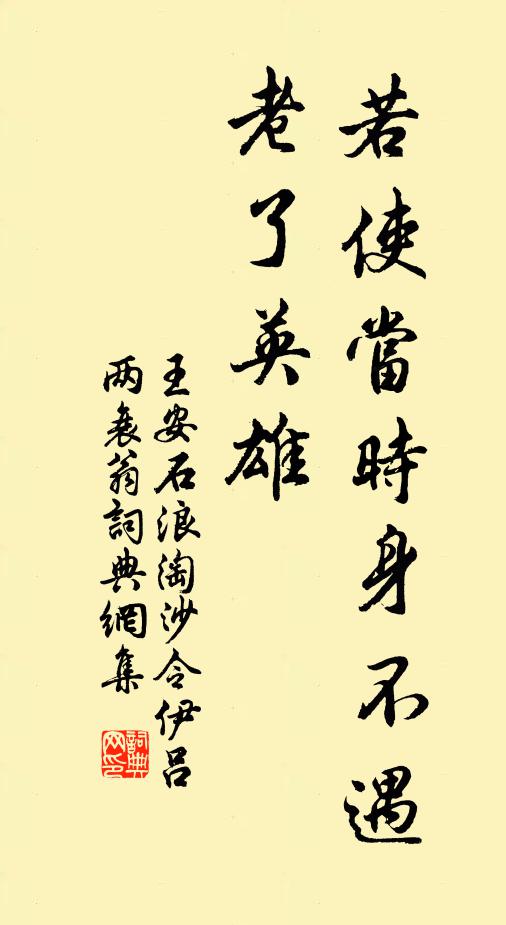 若使當時身不遇
老了英雄
王安石浪淘沙令伊呂
两衰翁詞典網集
詞典
网印